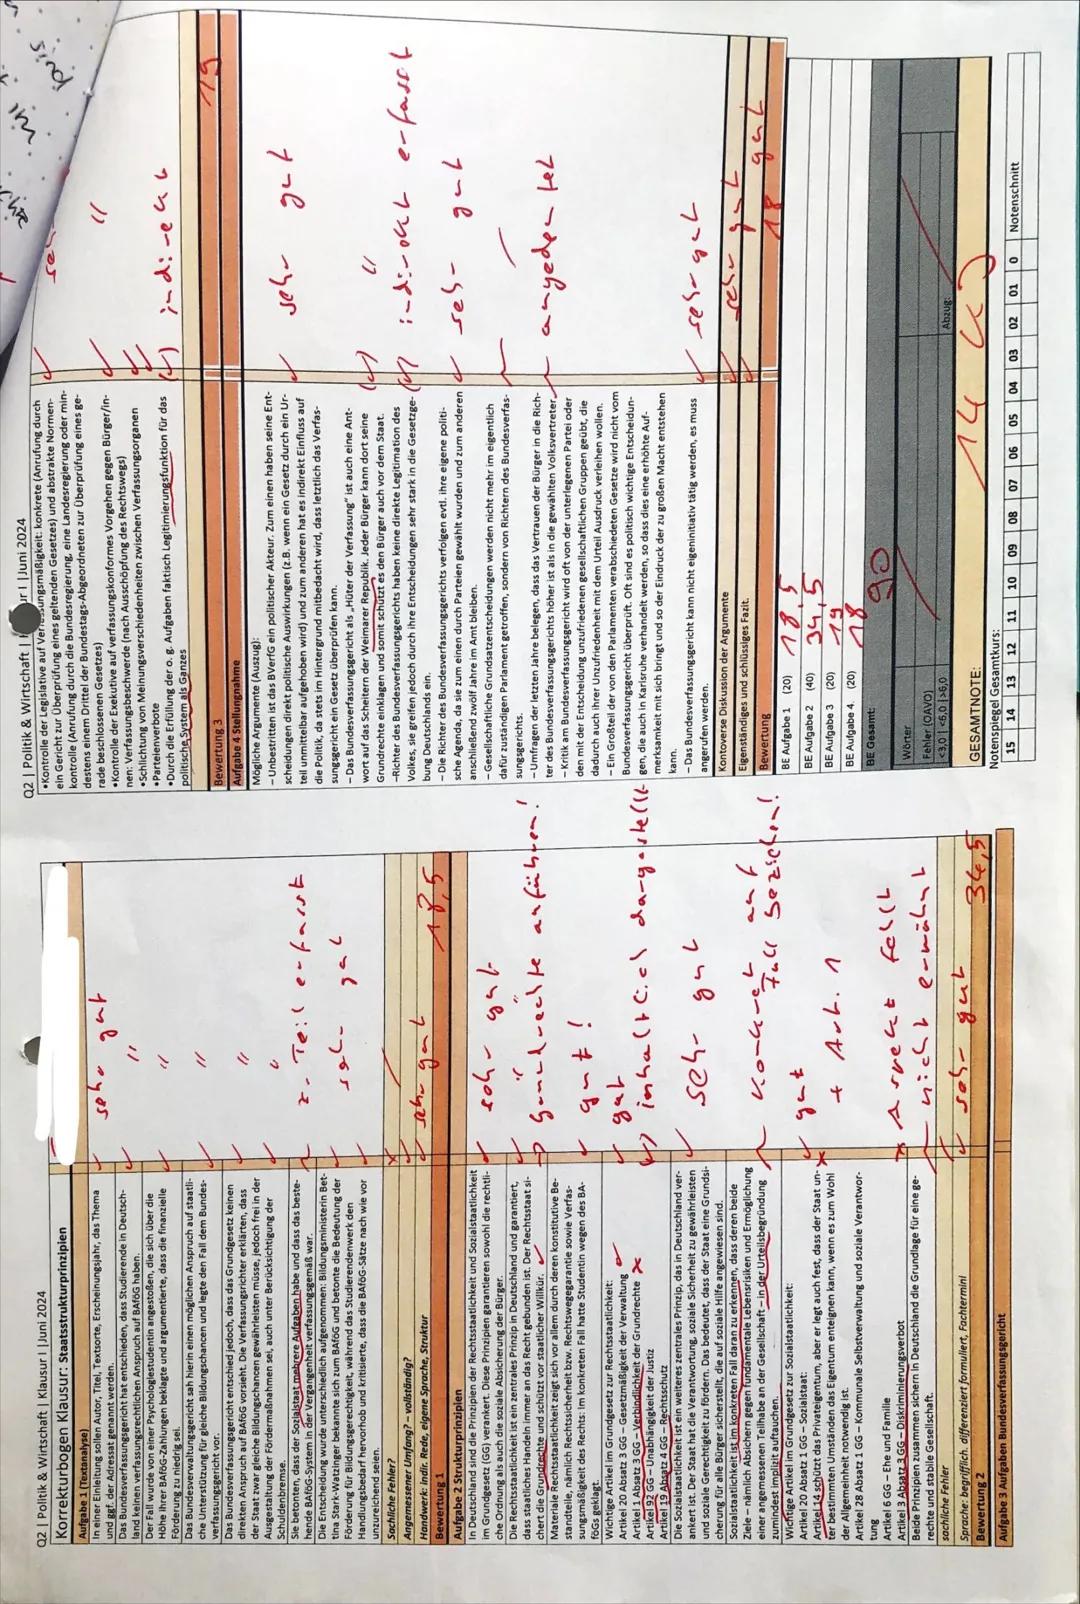 Q2 | Politik & Wirtschaft | Klausur I | Juni 2024
Korrekturbogen Klausur: Staatsstrukturprinzipien
Aufgabe 1 (Textanalyse)
In einer Einleitung sollen Autor, Titel, Textsorte, Erscheinungsjahr, das Thema ✓ sehr gut
und ggf. der Adressat genannt werden.
Das Bundesverfassungsgericht hat entschieden, dass Studierende in Deutsch- ✓ "
land keinen verfassungsrechtlichen Anspruch auf BAföG haben.
Der Fall wurde von einer Psychologiestudentin angestoßen, die sich über die ✓ "
Höhe ihrer BAföG-Zahlungen beklagte und argumentierte, dass die finanzielle
Förderung zu niedrig sei.
Das Bundesverwaltungsgericht sah hierin einen möglichen Anspruch auf staatli- ✓ "
che Unterstützung für gleiche Bildungschancen und legte den Fall dem Bundes-
verfassungsgericht vor.
Das Bundesverfassungsgericht entschied jedoch, dass das Grundgesetz keinen ✓ "
direkten Anspruch auf BAföG vorsieht. Die Verfassungsrichter erklärten, dass
der Staat zwar gleiche Bildungschancen gewährleisten müsse, jedoch frei in der ✓ "
Ausgestaltung der Fördermaßnahmen sei, auch unter Berücksichtigung der
Schuldenbremse.
Sie betonten, dass der Sozialstaat mehrere Aufgaben habe und dass das beste- z. Teil erfasst
hende BAföG-System in der Vergangenheit verfassungsgemäß war.
Die Entscheidung wurde unterschiedlich aufgenommen: Bildungsministerin Bet- ✓ sehr gut
tina Stark-Watzinger bekannte sich zum BAföG und betonte die Bedeutung der
Förderung für Bildungsgerechtigkeit, während das Studierendenwerk den
Handlungsbedarf hervorhob und kritisierte, dass die BAföG-Sätze nach wie vor ✓
unzureichend seien.
Sachliche Fehler?
Angemessener Umfang? – vollständig? ✓
Handwerk: indir. Rede, eigene Sprache, Struktur ✓ sehr gut
Bewertung 1 18,5
Aufgabe 2 Strukturprinzipien
In Deutschland sind die Prinzipien der Rechtsstaatlichkeit und Sozialstaatlichkeit ✓ sehr gut
im Grundgesetz (GG) verankert. Diese Prinzipien garantieren sowohl die rechtli-
che Ordnung als auch die soziale Absicherung der Bürger.
Die Rechtsstaatlichkeit ist ein zentrales Prinzip in Deutschland und garantiert, ✓ "
dass staatliches Handeln immer an das Recht gebunden ist. Der Rechtsstaat si-
chert die Grundrechte und schützt vor staatlicher Willkür. ✓ Grundrechte anführen!
Materiale Rechtsstaatlichkeit zeigt sich vor allem durch deren konstitutive Be- ✓ gut!
standteile, nämlich Rechtssicherheit bzw. Rechtswegegarantie sowie Verfas-
sungsmäßigkeit des Rechts: Im konkreten Fall hatte Studentin wegen des BA-
föGs geklagt.
Wichtige Artikel im Grundgesetz zur Rechtsstaatlichkeit: ✓ gut
Artikel 20 Absatz 3 GG – Gesetzmäßigkeit der Verwaltung ✓
Artikel 1 Absatz 3 GG – Verbindlichkeit der Grundrechte (✓) inhaltlich dargestellt
Artikel 92 GG – Unabhängigkeit der Justiz
Artikel 19 Absatz 4 GG – Rechtsschutz
Die Sozialstaatlichkeit ist ein weiteres zentrales Prinzip, das in Deutschland ver- ✓ sehr gut
ankert ist. Der Staat hat die Verantwortung, soziale Sicherheit zu gewährleisten
und soziale Gerechtigkeit zu fördern. Das bedeutet, dass der Staat eine Grundsi-
cherung für alle Bürger sicherstellt, die auf soziale Hilfe angewiesen sind.
Sozialstaatlichkeit ist im konkreten Fall daran zu erkennen, dass deren beide konkret auf
Ziele – nämlich Absichern gegen fundamentale Lebensrisiken und Ermöglichung Fall beziehen!
einer angemessenen Teilhabe an der Gesellschaft – in der Urteilsbegründung
zumindest implizit auftauchen.
Wichtige Artikel im Grundgesetz zur Sozialstaatlichkeit: gut
Artikel 20 Absatz 1 GG – Sozialstaat: ✓
Artikel 14 schützt das Privateigentum, aber er legt auch fest, dass der Staat un- + Art. 1
ter bestimmten Umständen das Eigentum enteignen kann, wenn es zum Wohl
der Allgemeinheit notwendig ist.
Artikel 28 Absatz 1 GG – Kommunale Selbstverwaltung und soziale Verantwor-
tung
Artikel 6 GG – Ehe und Familie
Artikel 3 Absatz 3 GG – Diskriminierungsverbot Aspekt fehlt
Beide Prinzipien zusammen sichern in Deutschland die Grundlage für eine ge- nicht erwähnt
rechte und stabile Gesellschaft.
sachliche Fehler
Sprache: begrifflich, differenziert formuliert, Fachtermini ✓ sehr gut
Bewertung 2 34,5
Aufgabe 3 Aufgaben Bundesverfassungsgericht
Q2 | Politik & Wirtschaft | ur I | Juni 2024
•Kontrolle der Legislative auf Verfassungsmäßigkeit: konkrete (Anrufung durch ✓
ein Gericht zur Überprüfung eines geltenden Gesetzes) und abstrakte Normen-
kontrolle (Anrufung durch die Bundesregierung, eine Landesregierung oder min-
destens einem Drittel der Bundestags-Abgeordneten zur Überprüfung eines ge-
rade beschlossenen Gesetzes)
•Kontrolle der Exekutive auf verfassungskonformes Vorgehen gegen Bürger/in- ✓ "
nen: Verfassungsbeschwerde (nach Ausschöpfung des Rechtswegs)
•Schlichtung von Meinungsverschiedenheiten zwischen Verfassungsorganen ✓
•Parteienverbote ✓
•Durch die Erfüllung der o. g. Aufgaben faktisch Legitimierungsfunktion für das (✓) indirekt
politische System als Ganzes
Bewertung 3 19
Aufgabe 4 Stellungnahme
Mögliche Argumente (Auszug):
– Unbestritten ist das BVerfG ein politischer Akteur. Zum einen haben seine Ent- ✓ sehr gut
scheidungen direkt politische Auswirkungen (z.B. wenn ein Gesetz durch ein Ur-
teil unmittelbar aufgehoben wird) und zum anderen hat es indirekt Einfluss auf
die Politik, da stets im Hintergrund mitbedacht wird, dass letztlich das Verfas-
sungsgericht ein Gesetz überprüfen kann.
– Das Bundesverfassungsgericht als „Hüter der Verfassung" ist auch eine Ant- (✓) "
wort auf das Scheitern der Weimarer Republik. Jeder Bürger kann dort seine
Grundrechte einklagen und somit schützt es den Bürger auch vor dem Staat.
–Richter des Bundesverfassungsgerichts haben keine direkte Legitimation des (✓) indirekt erfasst
Volkes, sie greifen jedoch durch ihre Entscheidungen sehr stark in die Gesetzge-
bung Deutschlands ein.
– Die Richter des Bundesverfassungsgerichts verfolgen evtl. ihre eigene politi- ✓ sehr gut
sche Agenda, da sie zum einen durch Parteien gewählt wurden und zum anderen
anschließend zwölf Jahre im Amt bleiben.
– Gesellschaftliche Grundsatzentscheidungen werden nicht mehr im eigentlich
dafür zuständigen Parlament getroffen, sondern von Richtern des Bundesverfas-
sungsgerichts.
– Umfragen der letzten Jahre belegen, dass das Vertrauen der Bürger in die Rich- angedeutet
ter des Bundesverfassungsgerichts höher ist als in die gewählten Volksvertreter.
– Kritik am Bundesverfassungsgericht wird oft von der unterlegenen Partei oder
den mit der Entscheidung unzufriedenen gesellschaftlichen Gruppen geübt, die
dadurch auch ihrer Unzufriedenheit mit dem Urteil Ausdruck verleihen wollen.
– Ein Großteil der von den Parlamenten verabschiedeten Gesetze wird nicht vom
Bundesverfassungsgericht überprüft. Oft sind es politisch wichtige Entscheidun-
gen, die auch in Karlsruhe verhandelt werden, so dass dies eine erhöhte Auf-
merksamkeit mit sich bringt und so der Eindruck der zu großen Macht entstehen
kann.
– Das Bundesverfassungsgericht kann nicht eigeninitiativ tätig werden, es muss ✓ sehr gut
angerufen werden.
Kontroverse Diskussion der Argumente ✓ sehr gut
Eigenständiges und schlüssiges Fazit. ✓ gut
Bewertung 18
BE Aufgabe 1 (20) 18,5
BE Aufgabe 2 (40) 34,5
BE Aufgabe 3 (20) 19
BE Aufgabe 4. (20) 18
BE Gesamt: 90
Wörter
Fehler (OAVO)
<3,0 | <6,0 | >6,0 Abzug:
GESAMTNOTE: 14
Notenspiegel Gesamtkurs:
15 14 13 12 11 10 09 08 07 06 05 04 03 02 01 0 Notenschnitt